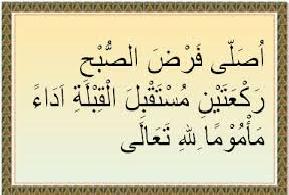 اُصَلِّى فَرْضَ الصُّبْحِ
رَكْعَتَيْنِ مُسْتَقْبِلَ الْقِبْلَةِ اَدَاءً
مَأْمُوْمًا لِلهِ تَعَالَى